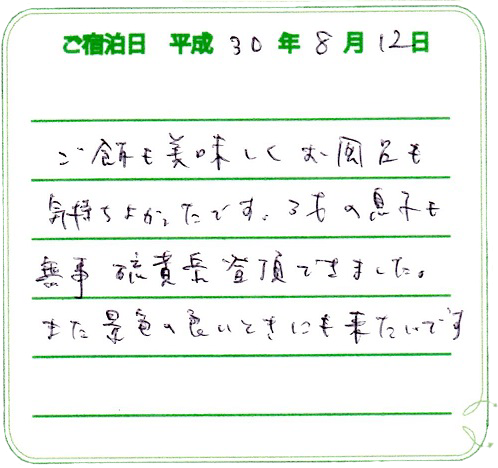 ご宿泊日 平成 30 年 8 月 12 日
ご飯も美味しくお風呂も
気持ちよかったです。3才の息子も
無事 硫黄岳登頂できました。
また景色の良いときにも来たいです